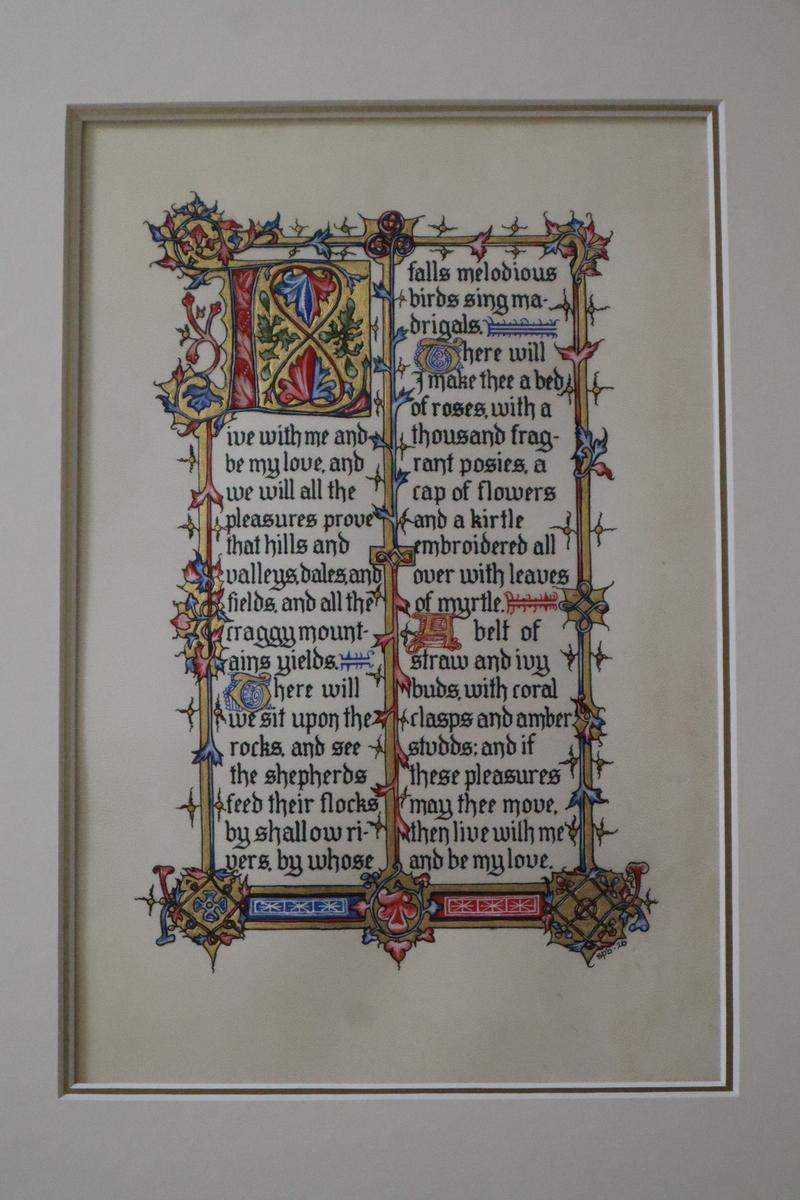 L
ive with me and
be my love, and
we will all the
pleasures prove
that hills and
valleys, dales, and
fields, and all the
craggy mount-
ains yields.
There will
we sit upon the
rocks, and see
the shepherds
feed their flocks
by shallow ri-
vers, by whose
falls melodious
birds sing ma-
drigals.
There will
I make thee a bed
of roses, with a
thousand frag-
rant posies, a
cap of flowers
and a kirtle
embroidered all
over with leaves
of myrtle.
A belt of
straw and ivy
buds, with coral
clasps and amber
studds; and if
these pleasures
may thee move,
then live with me
and be my love.
spb-26